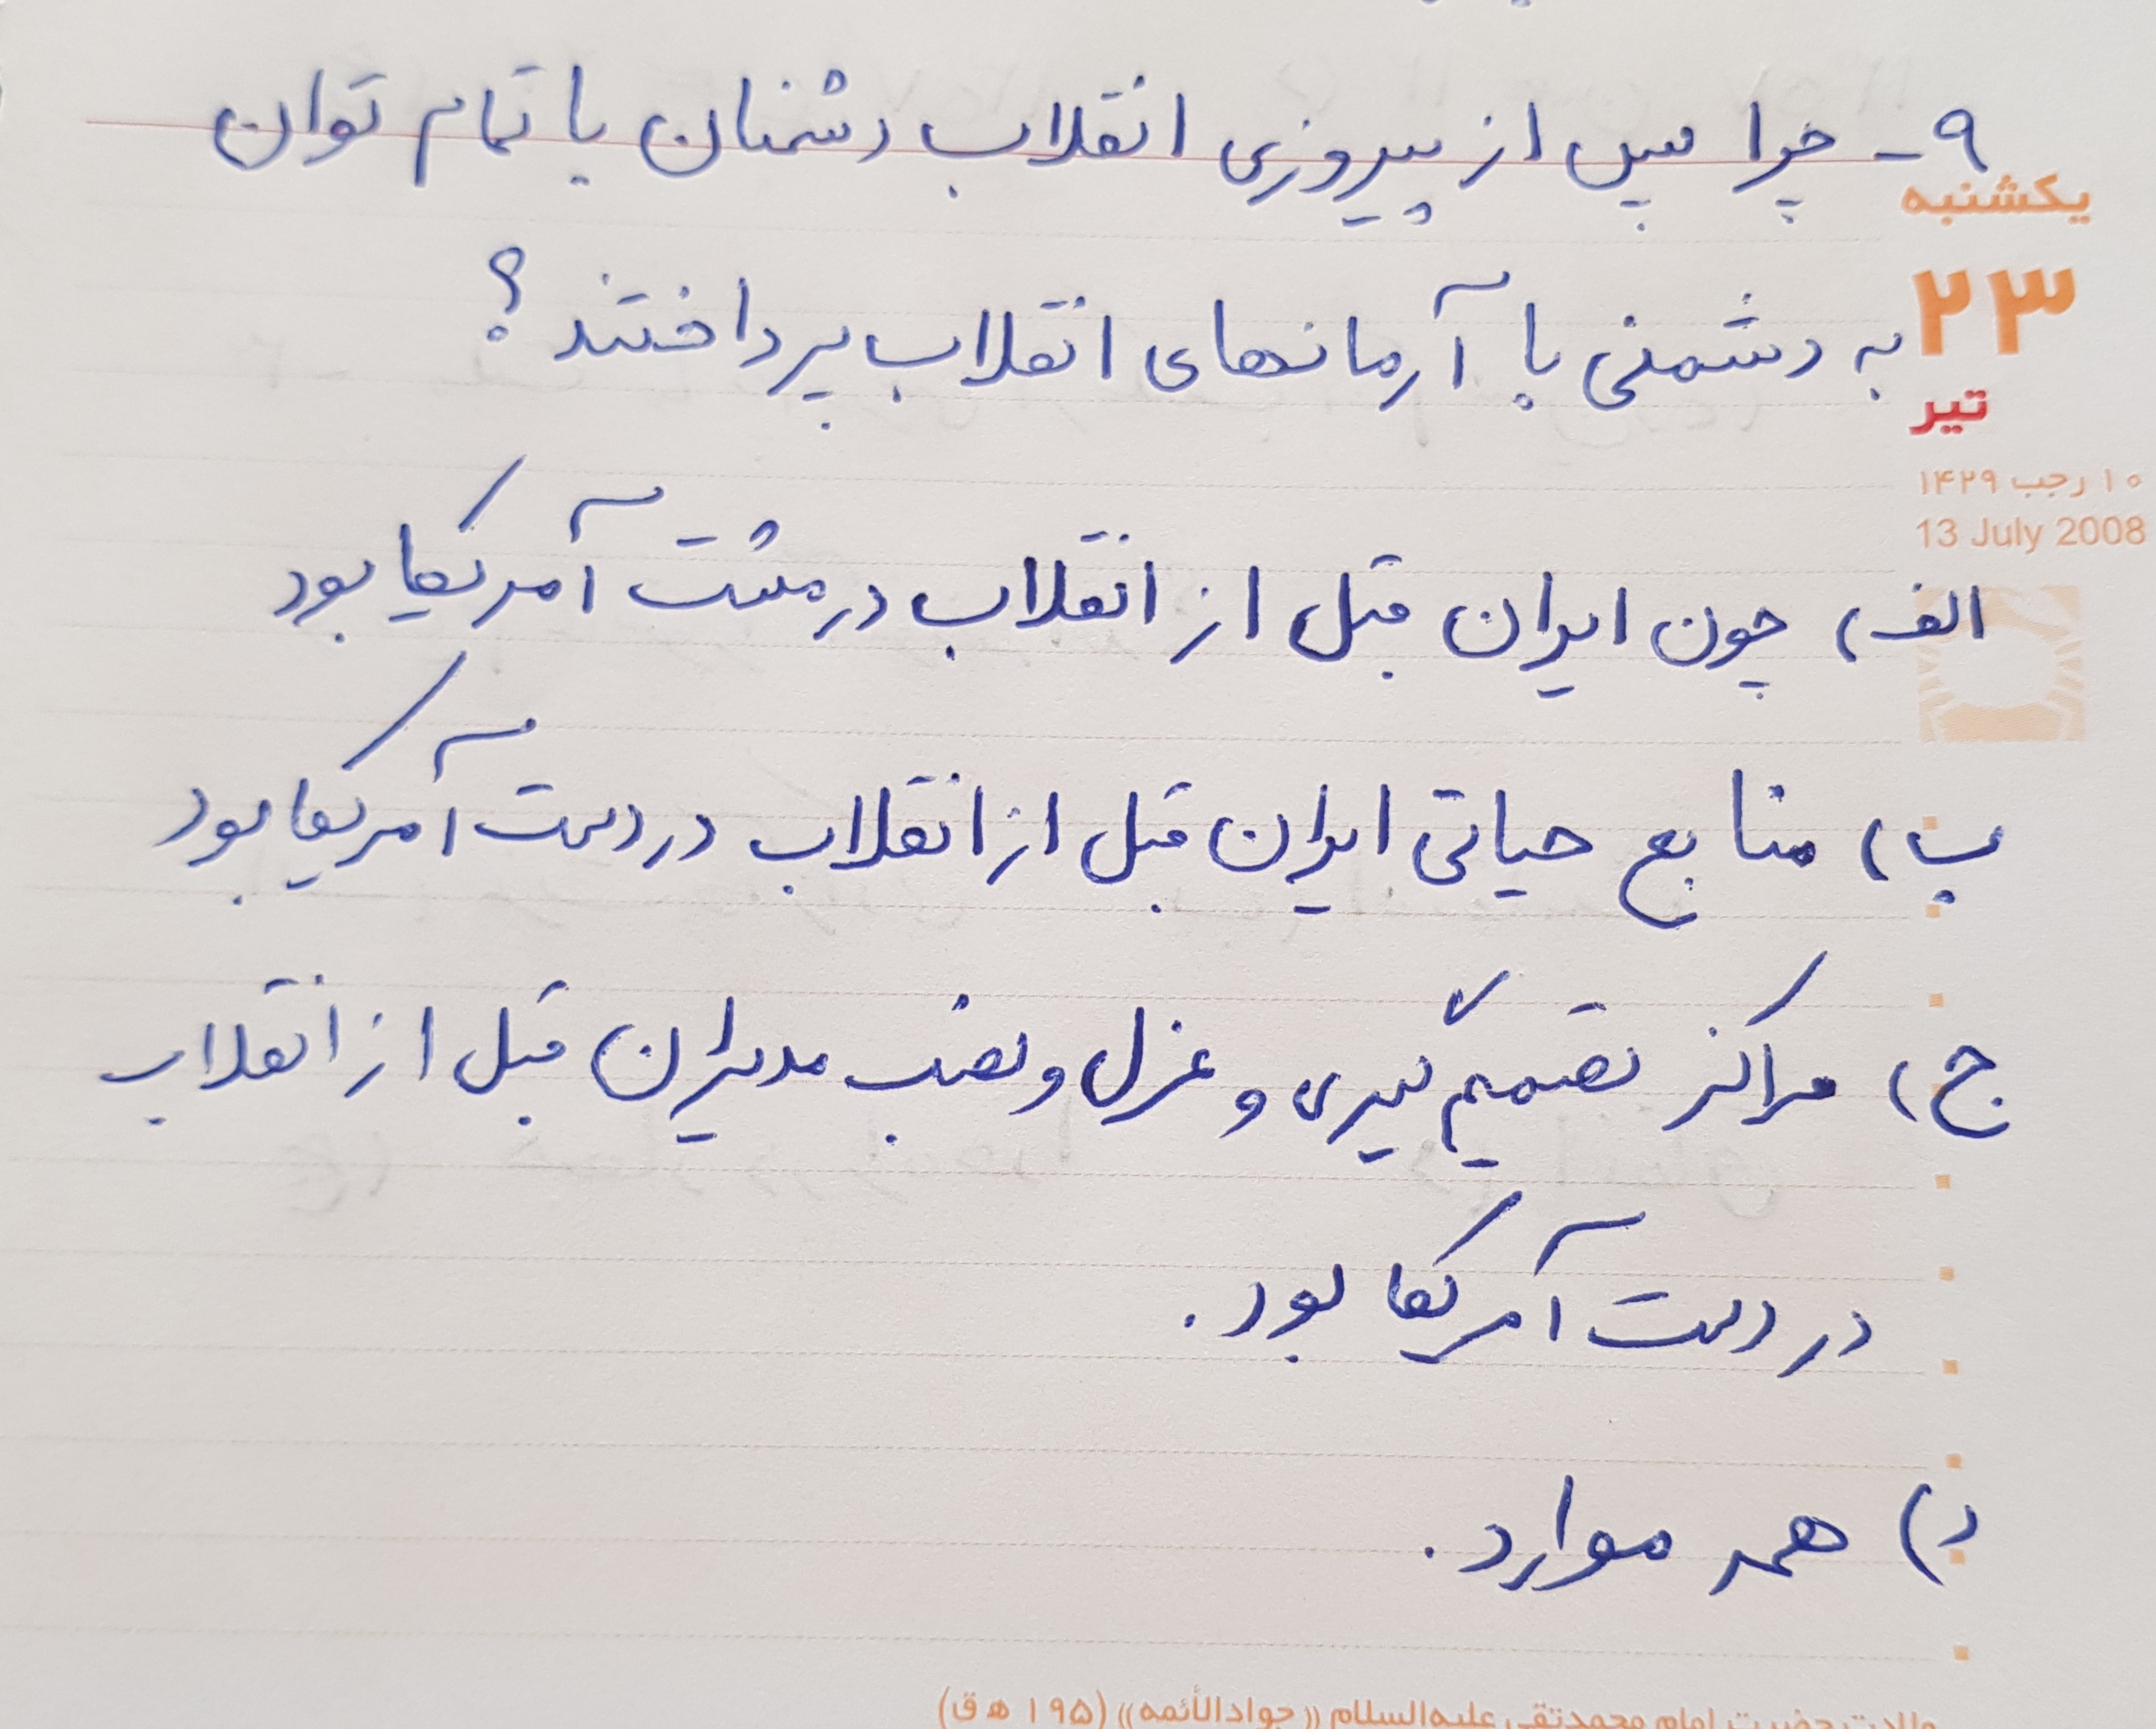 ۹- چرا پس از پیروزی انقلاب دشمنان با تمام توان
یکشنبه
۲۳
به دشمنی با آرمانهای انقلاب پرداختند؟
تیر
۱۰ رجب ۱۴۲۹
13 July 2008
الف) چون ایران قبل از انقلاب در مشت آمریکا بود
ب) منابع حیاتی ایران قبل از انقلاب در دست آمریکا بود
ج) مراکز تصمیم گیری و عزل و نصب مدیران قبل از انقلاب
در دست آمریکا بود.
د) همه موارد.
ولادت حضرت امام محمدتقی علیه‌السلام «جوادالأئمه» (۱۹۵ ه‍ ق)